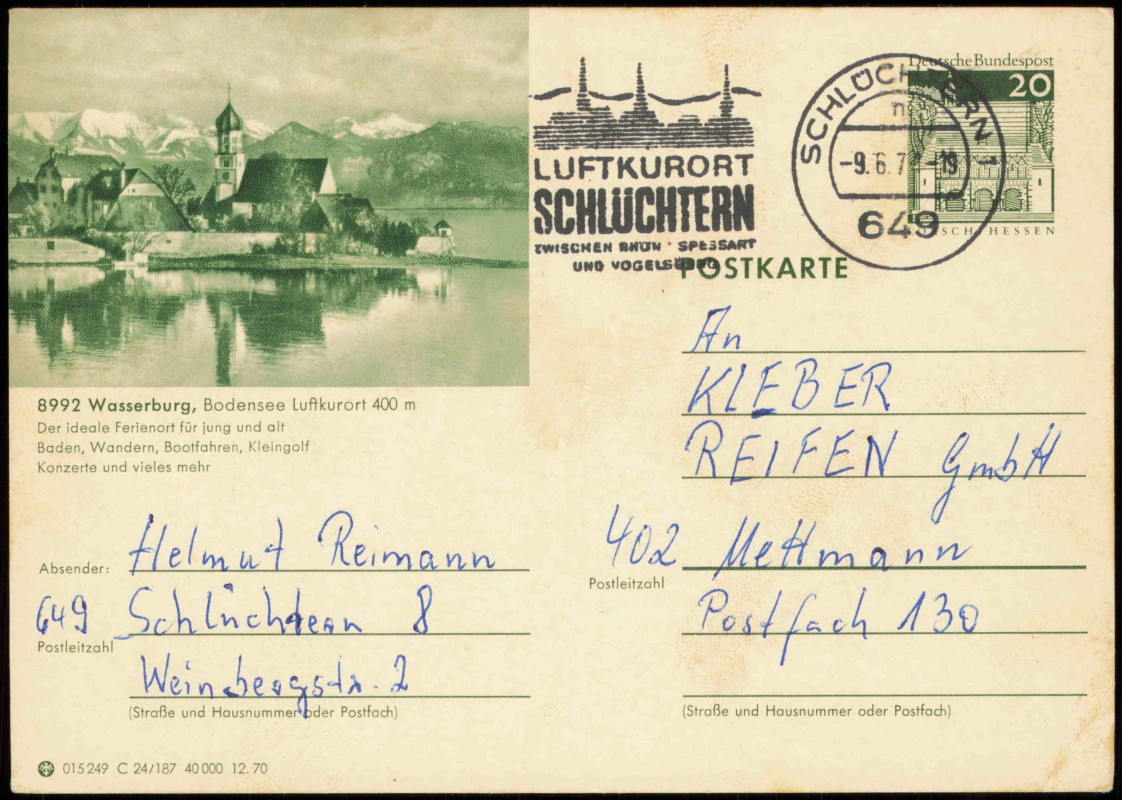 LUFTKURORT
SCHLÜCHTERN
ZWISCHEN RHÖN · SPESSART
UND
SCHLÜCHTERN 1
-9.6.7 -19
649
Deutsche Bundespost
20
HESSEN
POSTKARTE
8992 Wasserburg, Bodensee Luftkurort 400 m
Der ideale Ferienort für jung und alt
Baden, Wandern, Bootfahren, Kleingolf
Konzerte und vieles mehr
An
KLEBER
REIFEN GmbH
402 Mettmann
Postleitzahl
Postfach 130
(Straße und Hausnummer oder Postfach)
Absender: Helmut Reimann
649 Schlüchtern 8
Postleitzahl
Weinbergstr. 2
(Straße und Hausnummer oder Postfach)
015249 C 24/187 40000 12.70